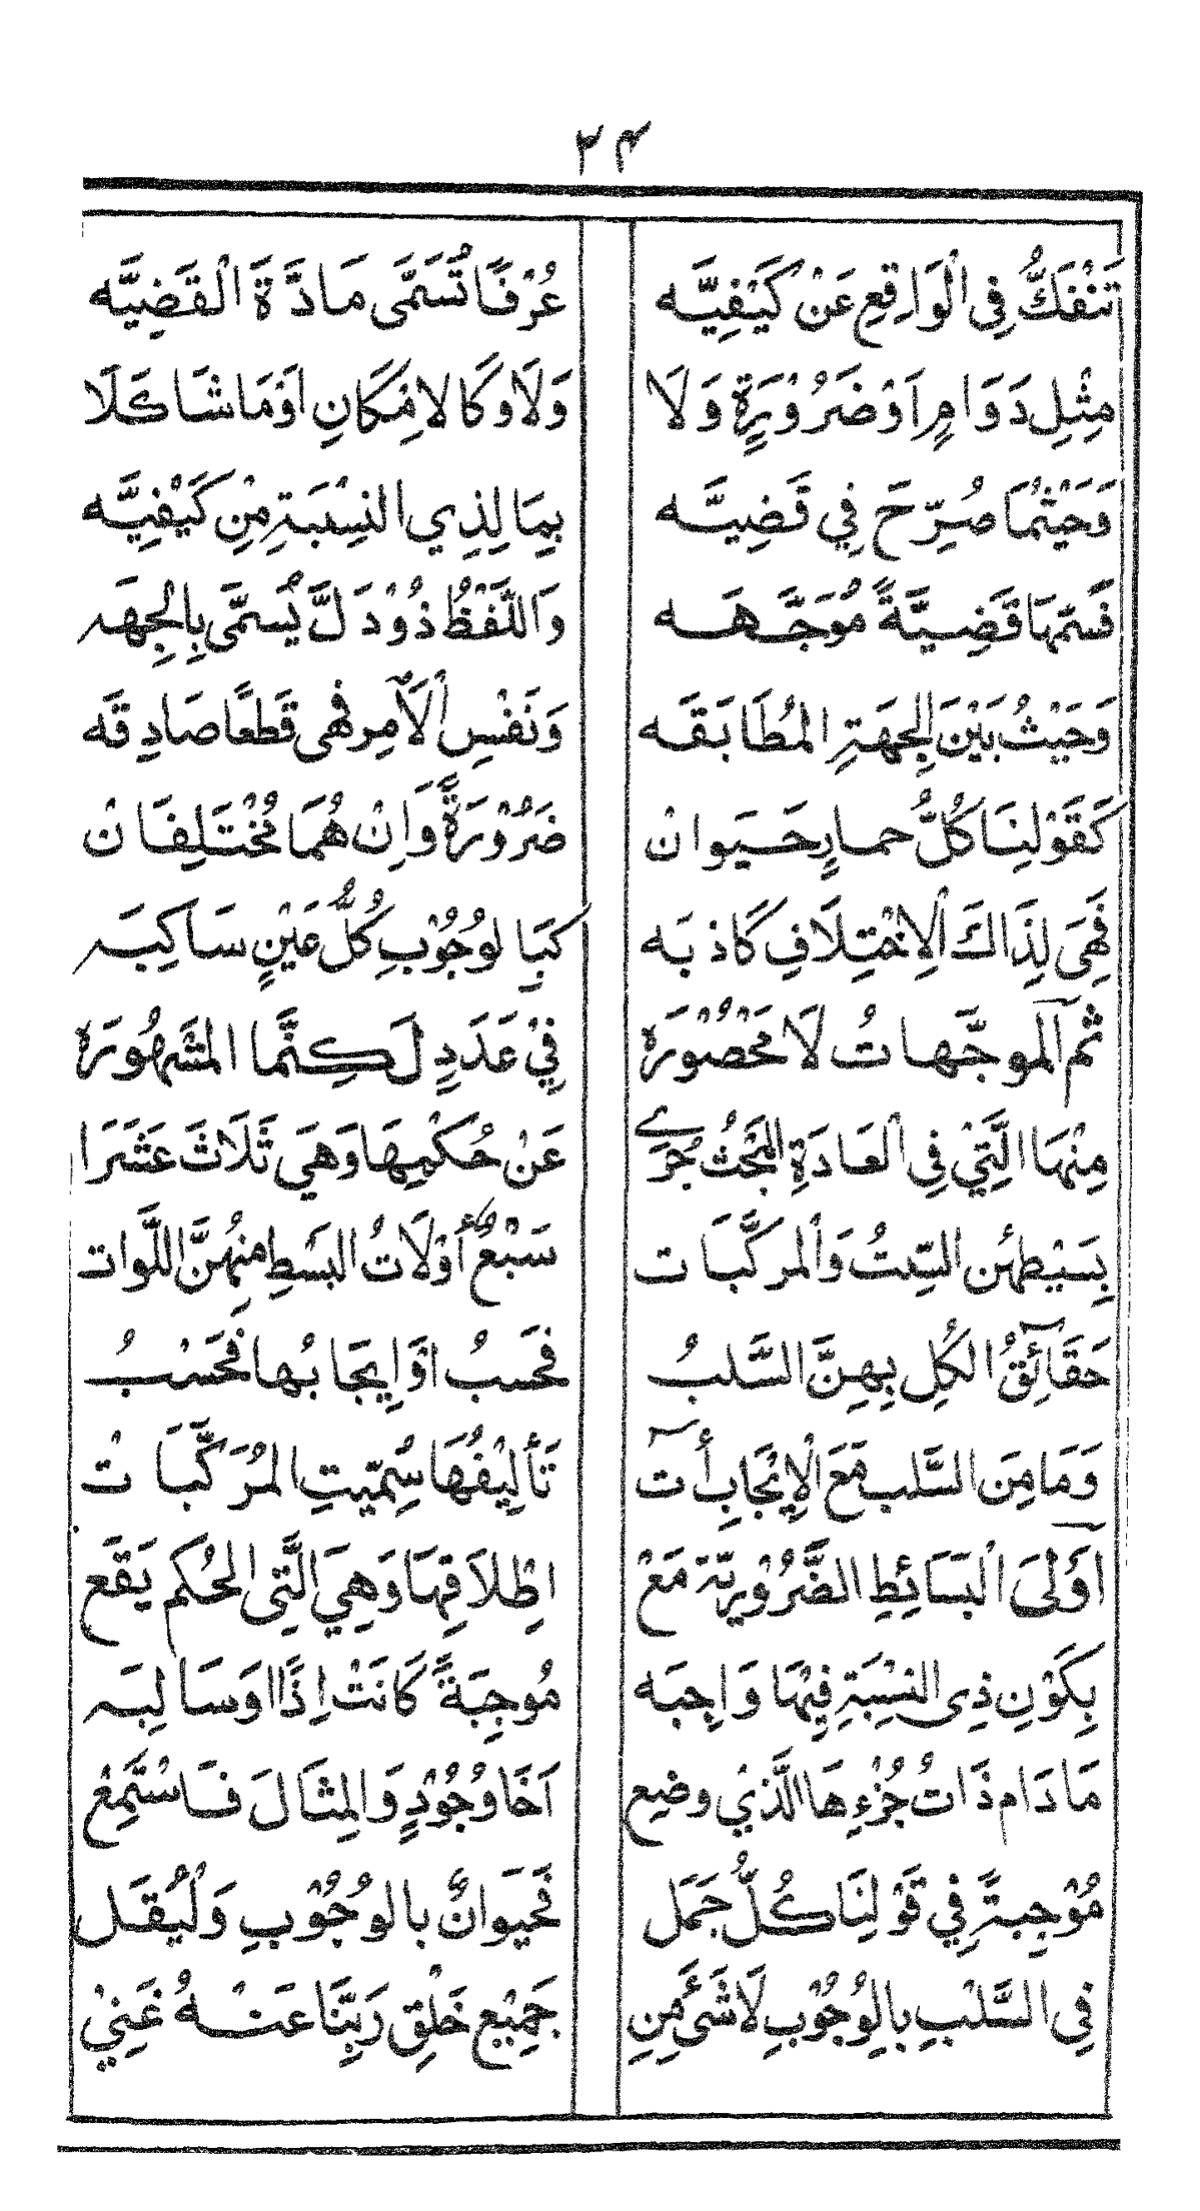 ٢٤
تَنْفَكُّ فِى الْوَاقِعِ عَنْ كَيْفِيَّه عُرْفًا تُسَمَّى مَادَّةَ الْقَضِيَّه
مِثْلِ دَوَامٍ اَوْ ضَرُوْرَةٍ وَلَا وَلَا وَكَالاِمْكَانِ اَوْ مَا شَاكَلَا
وَحَيْثُمَا صُرِّحَ فِي قَضِيَّه بِمَا لِذِي النِسْبَةِ مِنْ كَيْفِيَّه
فَسَمِّهَا قَضِيَّةً مُوَجَّهَه وَاللَّفْظُ ذُوْ دَلَّ يُسَمَّى بِالجِهَه
وَحَيْثُ بَيْنَ الجِهَةِ المُطَابَقَه وَنَفْسِ الْاَمْرِ فَهِى قَطعًا صَادِقَه
كَقَوْلِنَا كُلُّ حمارٍ حَيَوانْ ضَرُوْرَةً وَاِنْ هُمَا مُخْتَلِفَانْ
فَهِيَ لِذَاكَ الْاِخْتِلَافِ كَاذبَه كَبَا لوُجُوْبِ كُلُّ عَيْنٍ سَاكِبَه
ثم الْموجَّهاتُ لَا مَحْصُوْرَه فِيْ عَدَدٍ لَكِنَّما المَشْهُورَه
مِنْهَا الَّتِيْ فِى الْعَادَةِ المَبْحَثُ جُرَى عَنْ حُكْمِهَا وَهَي ثَلَاثَ عَشَرَا
بسَيْطهُن السِّتُ وَالْمركَّبَات سَبْعٌ أوْلَاتُ البَسْطِ مِنهُنَّ اللَّوات
حَقَائِقُ الكُلِ بِهِنَّ السَّلبُ فحَسبُ اوْ اِيجَابُها فَحَسْبُ
وَمَا مِنَ السَّلبِ مَعَ الْاِيْجَابِ أَت تَأْلِيْفُهَا سِمِّيَتِ المُرَكَّبَاتْ
اَوْلَىَ الْبَسَائِطِ الضَّرُوْرِيّة مَعْ اطْلاَقِهَا وَهِيَ الَّتِى الحُكم يَقَع
بِكَوْنِ ذِى النِسْبَةِ فِيْهَا وَاجِبَه مُوجِبَةً كَانَتْ اِذًا اوَسَالِبَه
مَا دَام ذَاتُ جُزْءِهَا الَّذيْ وضِع اَخَا وُجُوْدٍ وَالمِثَالَ فَاسْتَمِعْ
مُوْجِبةً فِي قَوْلِنَا كُلُّ جَمَل فَحيَوانٌ بالوُجُوْبِ وَلْيُقَل
فِى السَّلْبِ بِالوُجُوْبِ لَا شَىْءَ مِنِ جَمِيْعِ خَلْقِ رَبِّنَا عَنْهُ غَنِيْ